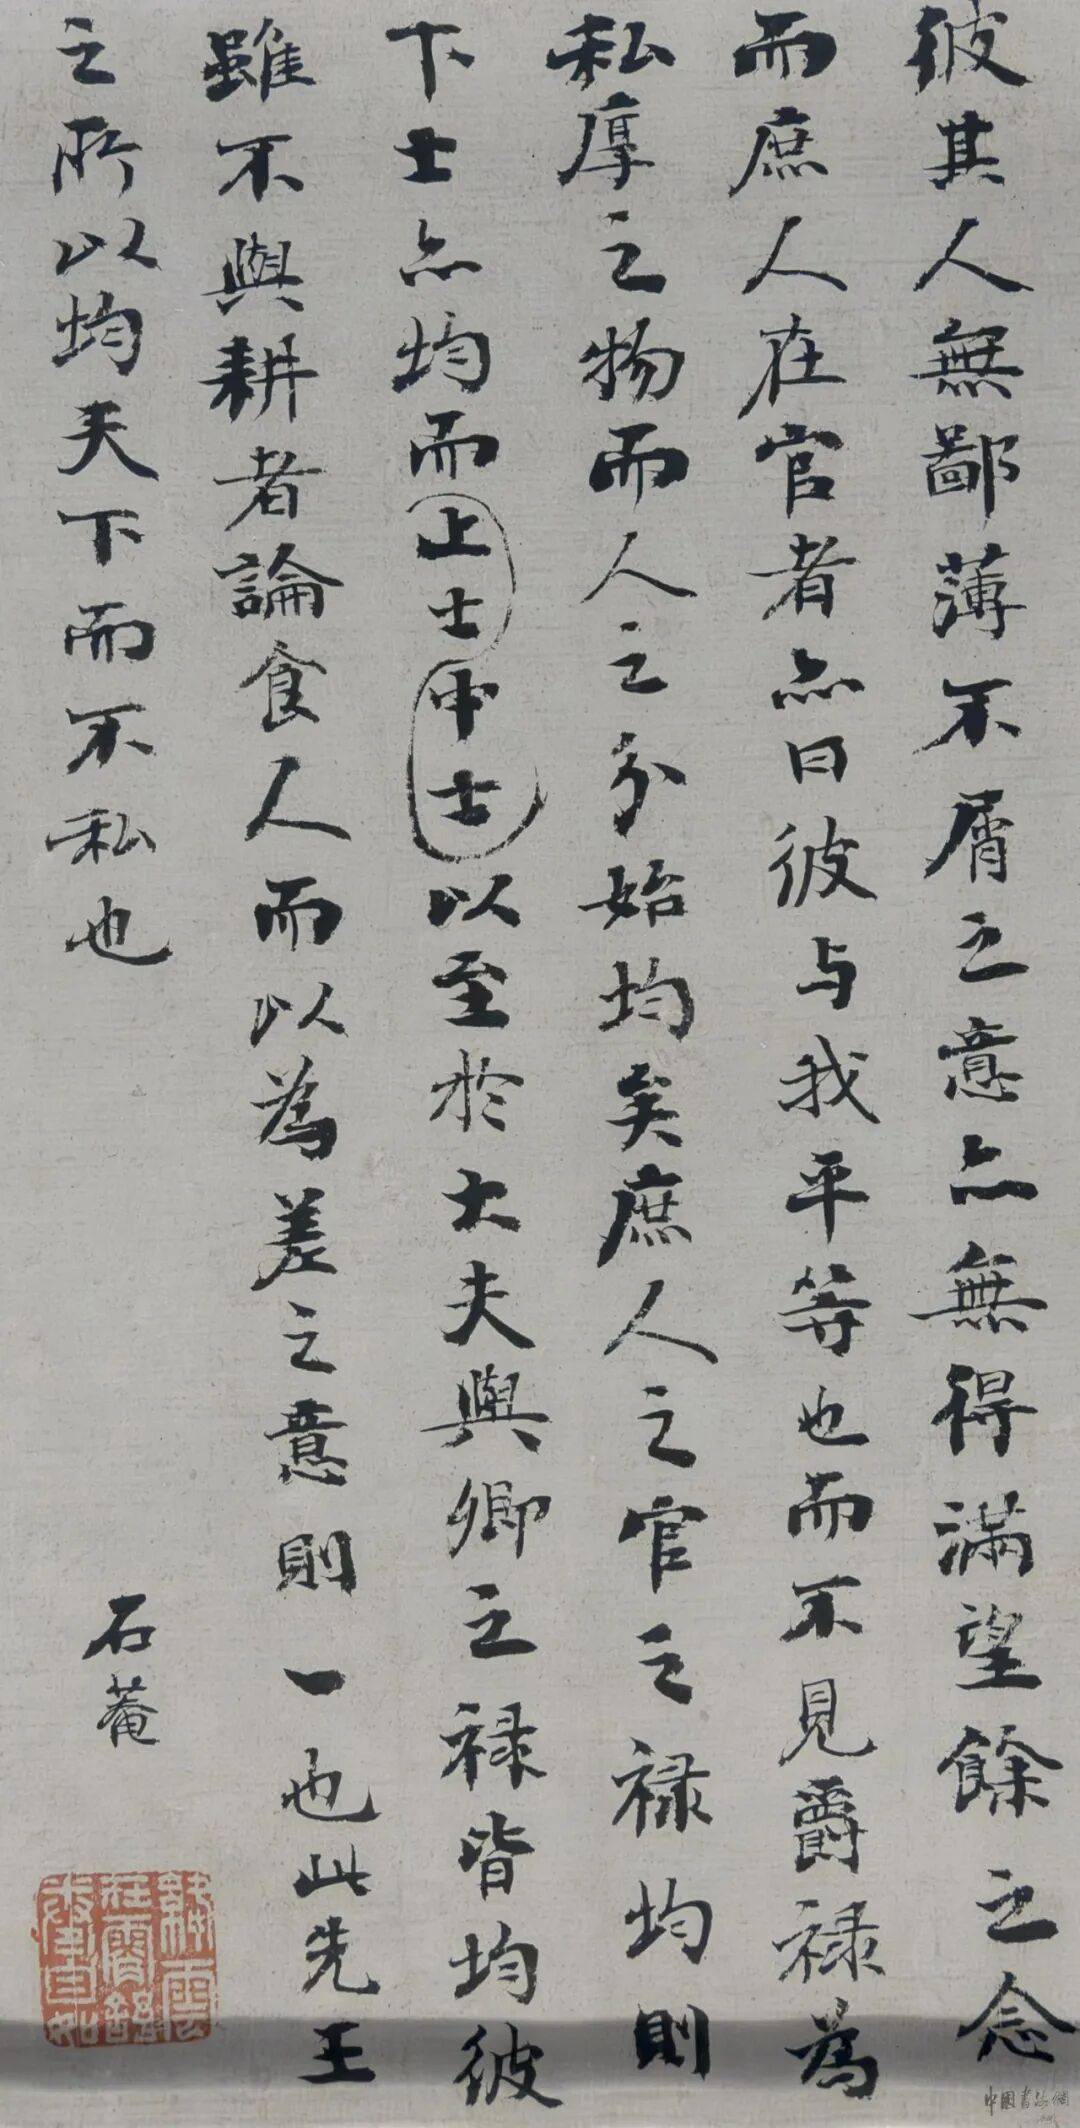 彼其人無鄙薄不屑之意亦無得滿望餘之念
而庶人在官者亦曰彼与我平等也而不見爵禄為
私厚之物而人之分始均矣庶人之官之禄均則
下士亦均而上士中士以至於大夫與卿之禄皆均彼
雖不與耕者論食人而以為差之意則一也此先王
之所以均天下而不私也
石菴
中國書法網